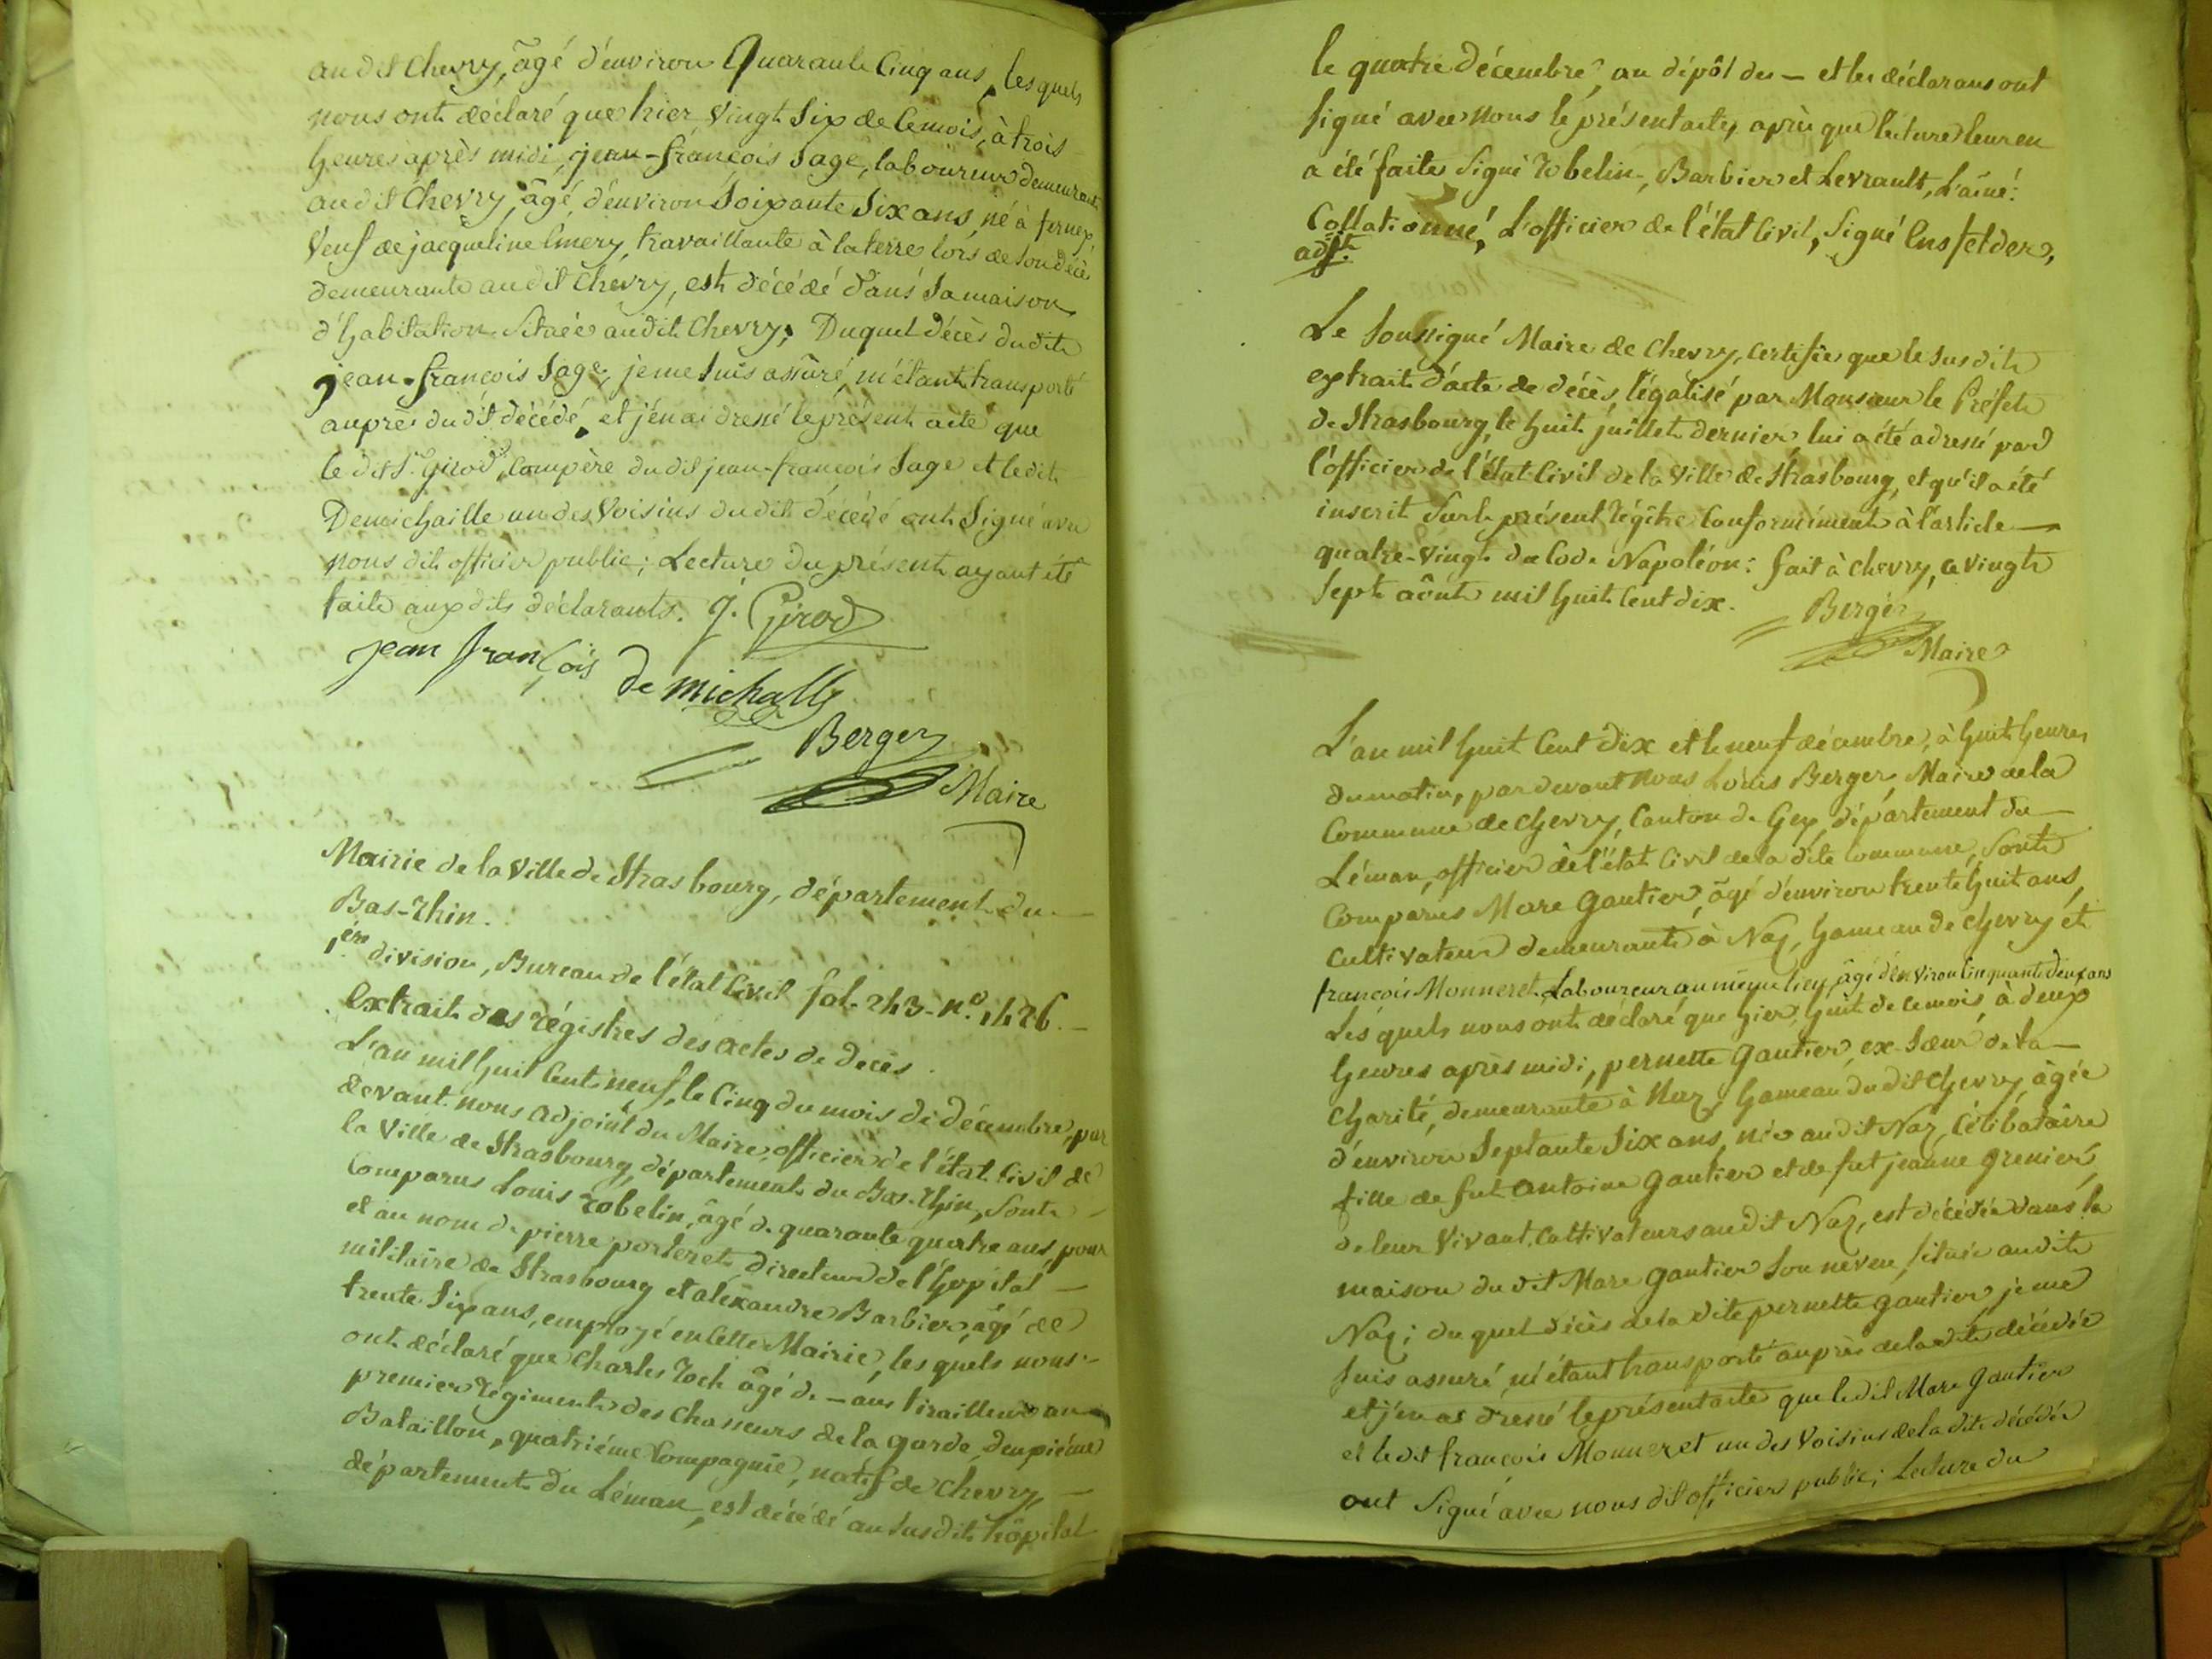 audit Chevry, âgé d'environ Quarante Cinq ans, les quels
nous ont déclaré que hier vingt Six de Cemois, à trois
heures après midi, jean-françois Sage, laboureur demeurant
audit Chevry, âgé d'environ Soixante Six ans, né à fernex,
Veuf de jacqueline Emery, travaillante à la terre lors de son décès
demeurante audit Chevry, est décédé dans Sa maison
d'habitation Située audit Chevry; Duquel décès dudit
jean-françois Sage, je me Suis assûré, m'étant transporté
auprès dudit décédé, et j'en ai dressé le présent acte que
le dit Sr. Girod, Compère du dit jean-françois Sage et ledit
Demichaille un des Voisins dudit décédé ont Signé avec
nous dit officier public; Lecture du présent ayant été
faite aux dits déclarants. J. Girod
jean françois de michally
Berger
Maire
Mairie de la Ville de Strasbourg, département du
Bas-Rhin.
1ère division, Bureau de l'état Civil fol. 243 - N.º 1426. -
Extrait des régistres des actes de décès.
L'an mil huit Cent neuf, le Cinq du mois de décembre, par
devant nous adjoint du Maire, officier de l'état Civil de
la Ville de Strasbourg, département du Bas-Rhin, Sont
Comparus Louis Robelin, âgé de quarante quatre ans, pour
et au nom de pierre porteret, directeur de l'hopital
militaire de Strasbourg et aléxandre Barbier, âgé de
trente Six ans, employé en Cette Mairie, les quels nous
ont déclaré que Charles Roch âgé de — ans tirailleur au
premier régiment des Chasseurs de la garde, deuxiéme
Bataillon, quatriéme Compagnie, natif de Chevry,
département du Léman, est décédé au Susdit hôpital
le quatre décembre, au dépôt des — et les déclarans ont
Signé avec Nous le présent acte, après que lecture leur en
a été faite Signé Robelin, Barbier et Levrault, L'aîné.
Collationné, L'officier de l'état Civil, Signé Ensfelder,
adjt.
Le Soussigné Maire de Chevry, Certifie que le Susdit
extrait d'acte de décès, légalisé par Monsieur le Préfet
de Strasbourg, le huit juillet dernier lui a été adressé par
l'officier de l'état Civil de la Ville de Strasbourg, et qu'il a été
inscrit Sur le présent régître Conformément à l'article —
quatre-Vingt du Code Napoléon: fait à Chevry, a Vingt
Sept août mil huit Cent dix.
Berger
Maire
L'an mil huit Cent dix et le neuf décembre, à huit heures
du matin, par devant Nous Louis Berger, Maire de la
Commune de Chevry, Canton de Gex, département du
Léman, officier de l'état Civil de la dite Commune, Sont
Comparus Marc Gautier, âgé d'environ trente huit ans,
Cultivateur demeurant à Naz, hameau de Chevry et
françois Monneret, Laboureur au même lieu, âgé d'environ Cinquante deux ans
Les quels nous ont déclaré que hier, huit de Cemois à deux
heures après midi, pernette Gautier, ex-Sœur de la
Charité, demeurante à Naz, hameau dudit Chevry, âgée
d'environ Septante Six ans, née audit Naz, Célibataire
fille de fut Antoine Gautier et de fut jeanne Grenier,
de leur Vivant, Cultivateurs audit Naz, est décédée dans la
maison du dit Marc Gautier Son neveu, Située audit
Naz; du quel décès de la dite pernette Gautier je me
Suis assuré, m'étant transporté auprès de la dite décédée
et j'en ai dressé le présent acte que le dit Marc Gautier
et le dit françois Monneret un des Voisins de la dite décédée
ont Signé avec nous dit officier public; Lecture du